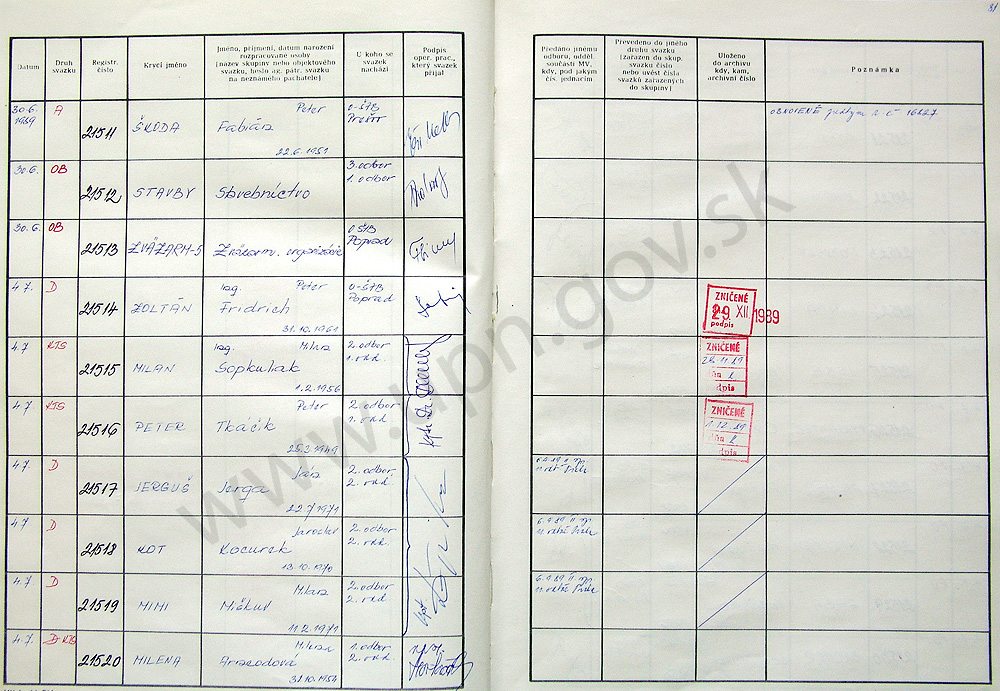 31
Datum
Druh svazku
Registr. číslo
Krycí jméno
Jméno, příjmení, datum narození
rozpracované osoby
[název skupiny nebo objektového
svazku, heslo ag. pátr. svazku
na neznámého pachatele]
U koho se
svazek
nachází
Podpis
oper. prac.,
který svazek
přijal
Předáno jinému
odboru, odděl.
součásti MV,
kdy, pod jakým
čís. jednacím
Převedeno do jiného
druhu svazku
[zařazen do skup.
svazku číslo
nebo uvést čísla
svazků zařazených
do skupiny]
Uloženo
do archivu
kdy, kam,
archivní číslo
Poznámka
30.6. 1989 A 21511 ŠKODA Peter Fabián 22.6.1951 O-ŠTB
OBNOVENÉ 16827
30.6. OB 21512 STAVBY Stavebníctvo 3. odbor 1. odbor
30.6. OB 21513 ZVÄZARM-5 Zväzarm. organizácie O ŠTB Poprad
4.7. D 21514 ZOLTÁN Ing. Peter Fridrich 31.10.1961 O-ŠTB Poprad
ZNIČENÉ 29. XII. 1989 podpis
4.7 KTS 21515 MILAN Ing. Milan Sopkuliak 1.2.1956 2. odbor 1. odd.
ZNIČENÉ
4.7. KTS 21516 PETER Peter Tkáčik 2. odbor 1. odd.
ZNIČENÉ 1.12.89
4.7. D 21517 JERGUŠ Jerga 22.7.1971 2. odbor 2. odd.
4.7 D 21518 KOT Jaroslav Kocurek 13.10.1970 2. odbor 2. odd.
6.9.89
4.7. D 21519 MIMI Milan Miškuf 11.2.1971 2. odbor 2. odd.
6.9.89
4.7. D KTS 21520 MILENA Milena 31.10.1954 1. odbor 2. odd.
www.upn.gov.sk